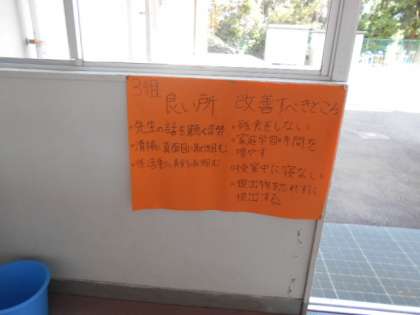 3組
良い所
・先生の話を聴く姿勢
・清掃に真面目に取り組む
改善すべきところ
・残食をしない
・家庭学習の時間を
増やす
・授業中に寝ない
・提出物を忘れずに
提出する